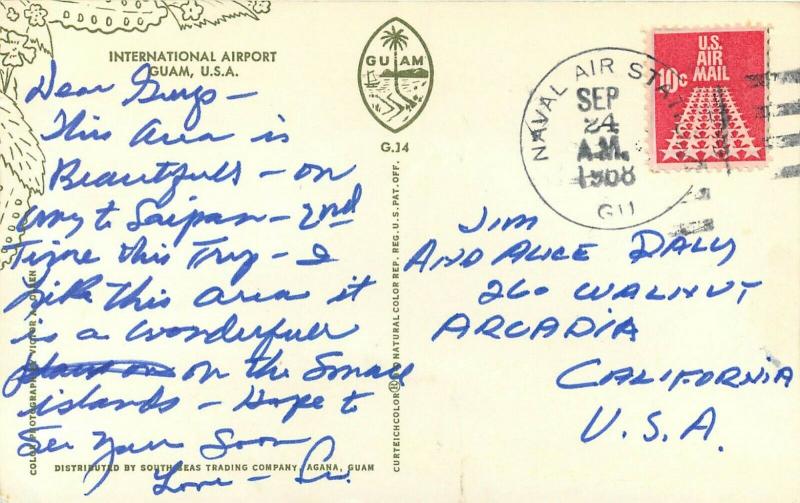 INTERNATIONAL AIRPORT
GUAM, U.S.A.
Dear Guys -
This area is
Beautifull - on
way to Saipan - 2nd
Time this Trip - I
like this area it
is a wonderfull
on the small
islands - Hope to
See You Soon
Love -
GUAM
G.14
COLOR PHOTOGRAPH BY VICTOR
DISTRIBUTED BY SOUTH SEAS TRADING COMPANY, AGANA, GUAM
CURTEICHCOLOR® 3-D NATURAL COLOR REP. REG. U.S. PAT. OFF.
NAVAL AIR STAT
SEP
24
A.M.
1968
GU
U.S.
AIR
MAIL
10c
JIM
AND ALICE DALY
260 WALNUT
ARCADIA
CALIFORNIA
U.S.A.